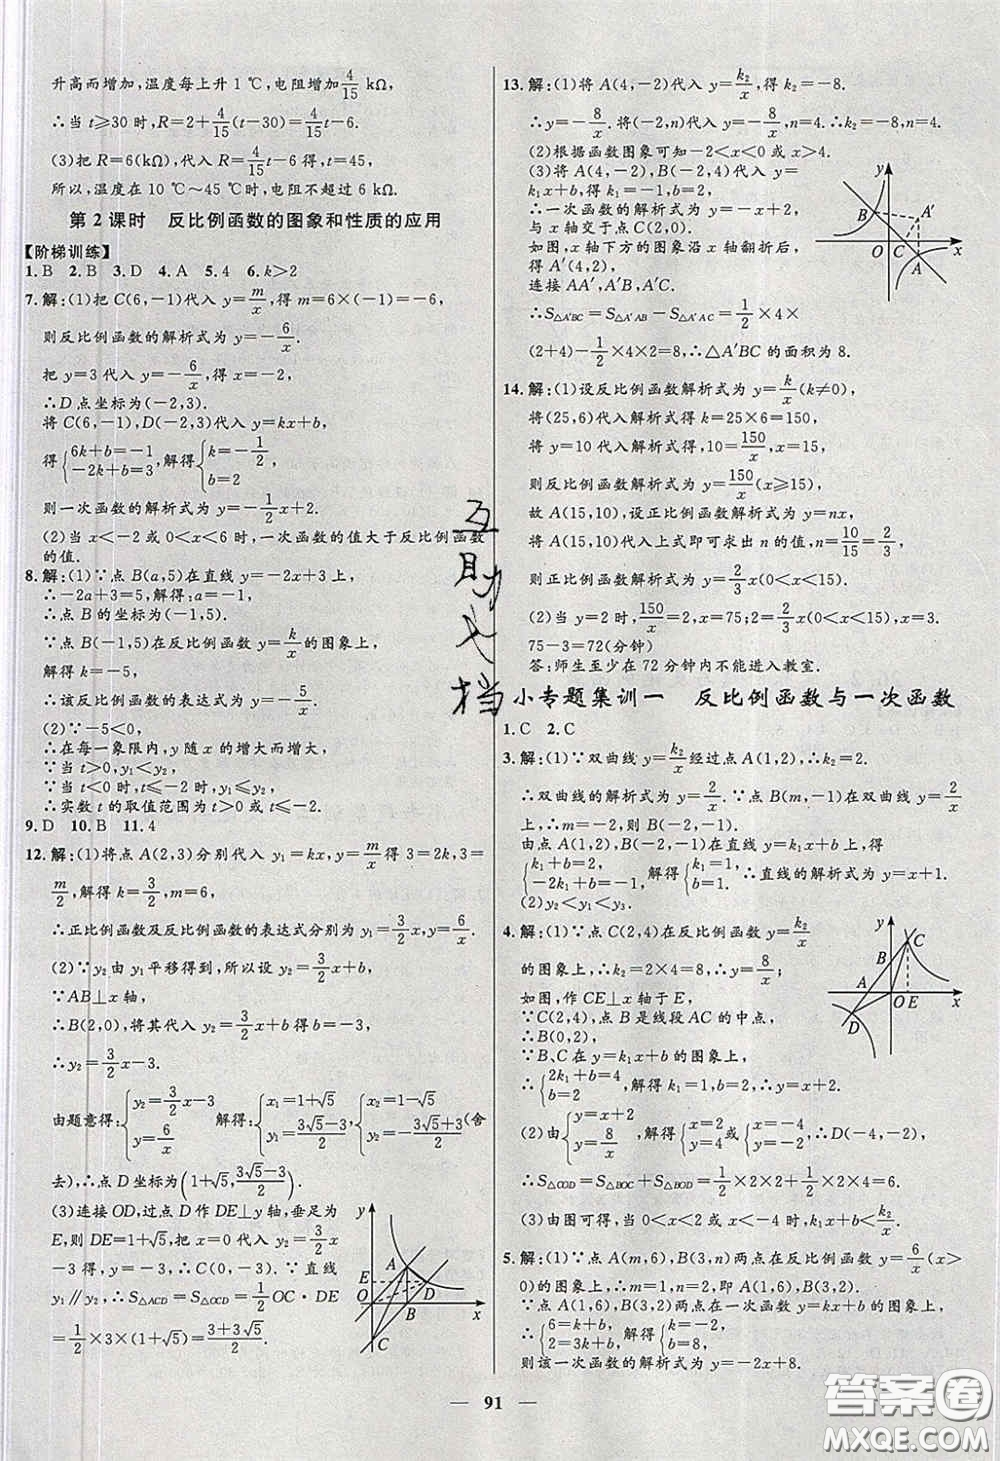 升高而增加,温度每上升1 ℃,电阻增加4/15 kΩ.
∴当 t≥30 时,R=2+4/15(t-30)=4/15t-6.
(3)把 R=6(kΩ),代入 R=4/15t-6 得,t=45,
所以,温度在 10 ℃~45 ℃时,电阻不超过 6 kΩ.
第2课时 反比例函数的图象和性质的应用
【阶梯训练】
1.B 2.B 3.D 4.A 5.4 6.k>2
7.解:(1)把 C(6,-1)代入 y=m/x,得 m=6×(-1)=-6,
则反比例函数的解析式为 y=-6/x,
把 y=3 代入 y=-6/x,得 x=-2,
∴D 点坐标为(-2,3).
将 C(6,-1),D(-2,3)代入 y=kx+b,
得{6k+b=-1 -2k+b=3,解得{k=-1/2, b=2
则一次函数的解析式为 y=-1/2x+2.
(2)当 x<-2 或 0<x<6 时,一次函数的值大于反比例函数
的值.
8.解:(1)∵点 B(a,5)在直线 y=-2x+3 上,
∴-2a+3=5,解得:a=-1.
∴点 B 的坐标为(-1,5).
∵点 B(-1,5)在反比例函数 y=k/x 的图象上,
解得 k=-5,
∴该反比例函数的表达式为 y=-5/x.
(2)∵-5<0,
∴在每一象限内,y 随 x 的增大而增大,
∵当 t>0 时,y₁<y₂.
∵当 t<0 时,t≤-2 时,y₁≤y₂.
∴实数 t 的取值范围为 t>0 或 t≤-2.
9.D 10.B 11.4
12.解:(1)将点 A(2,3)分别代入 y₁=kx,y=m/x 得 3=2k,3=
m/2,解得 k=3/2,m=6,
∴正比例函数及反比例函数的表达式分别为 y₁=3/2x,y=6/x.
(2)∵y₂ 由 y₁ 平移得到,所以设 y₂=3/2x+b,
∵AB⊥x 轴,
∴B(2,0),将其代入 y₂=3/2x+b 得:b=-3,
∴y₂=3/2x-3.
由题意得:{y₂=3/2x-3 y=6/x 解得:{x₁=1+√5 y₁=(3√5-3)/2,{x₂=1-√5 y₂=-(3√5+3)/2(舍
去),∴点 D 坐标为(1+√5,(3√5-3)/2).
(3)连接 OD,过点 D 作 DE⊥y 轴,垂足为
E,则 DE=1+√5,将 x=0 代入 y=3/2x
-3 得,y=-3,∴C(0,-3).∵直线
y₁∥y₂,∴S△ACD=S△OCD=1/2OC·DE
=1/2×3×(1+√5)=(3+3√5)/2.
y A E D O B x C
13.解:(1)将 A(4,-2)代入 y=k₂/x,得 k₂=-8.
∴y=-8/x.将(-2,n)代入 y=-8/x,n=4.∴k₂=-8,n=4
(2)根据函数图象可知-2<x<0 或 x>4.
(3)将 A(4,-2),B(-2,4)代入 y=
k₁x+b,得 k₁=-1,b=2.
∴一次函数的解析式为 y=-x+2,
与 x 轴交于点 C(2,0).
如图,x 轴下方的图象沿 x 轴翻折后,
得 A′(4,2),
连接 AA′,A′B,A′C,
∴S△A′BC=S△A′AB-S△A′AC=1/2×4×
(2+4)-1/2×4×2=8,∴△A′BC 的面积为 8.
y B A′ O C x A
14.解:(1)设反比例函数解析式为 y=k/x(k≠0),
将(25,6)代入解析式得 k=25×6=150,
将 y=10 代入解析式得,10=150/x,x=15,
则反比例函数解析式为 y=150/x(x≥15),
故 A(15,10),设正比例函数解析式为 y=nx,
将 A(15,10)代入上式即可求出 n 的值,n=10/15=2/3,
则正比例函数解析式为 y=2/3x(0<x<15).
(2)当 y=2 时,150/x=2,x=75,y=2/3x(0<x<15),x=3.
75-3=72(分钟)
答:师生至少在 72 分钟内不能进入教室.
小专题集训一 反比例函数与一次函数
1.C 2.C
3.解:(1)∵双曲线 y=k₂/x 经过点 A(1,2),∴k₂=2.
∴双曲线的解析式为 y=2/x,∵B(m,-1)在双曲线 y=2/x
上,∴m=-2,则 B(-2,-1).
由点 A(1,2),B(-2,-1)在直线 y=k₁x+b 上,得
{k₁+b=2 -2k₁+b=-1,解得{k₁=1, b=1. ∴直线的解析式为 y=x+1
(2)y₂<y₁<y₃.
4.解:(1)∵点 C(2,4)在反比例函数 y=k₂/x
的图象上,∴k₂=2×4=8,∴y=8/x;
如图,作 CE⊥x 轴于 E,
∵C(2,4),点 B 是线段 AC 的中点,
∴B(0,2),
∵B、C 在 y=k₁x+b 的图象上,
∴{2k₁+b=4 b=2,解得 k₁=1,b=2.∴y=x+2
(2)由{y=x+2 y=8/x,解得{x=2 y=4或{x=-4 y=-2,∴D(-4,-2),
∴S△COD=S△BOC+S△BOD=1/2×2×2+1/2×2×4=6;
(3)由图可得,当 0<x<2 或 x<-4 时,k₁x+b<k₂/x.
y C B A O E x D
5.解:(1)∵点 A(m,6),B(3,n)两点在反比例函数 y=6/x(x>
0)的图象上,∴m=1,n=2,即 A(1,6),B(3,2)
∵点 A(1,6),B(3,2)两点在一次函数 y=kx+b 的图象上,
∴{6=k+b 2=3k+b,解得{k=-2 b=8,
则该一次函数的解析式为 y=-2x+8.
互助文档
— 91 —
答案圈
MXQE.COM